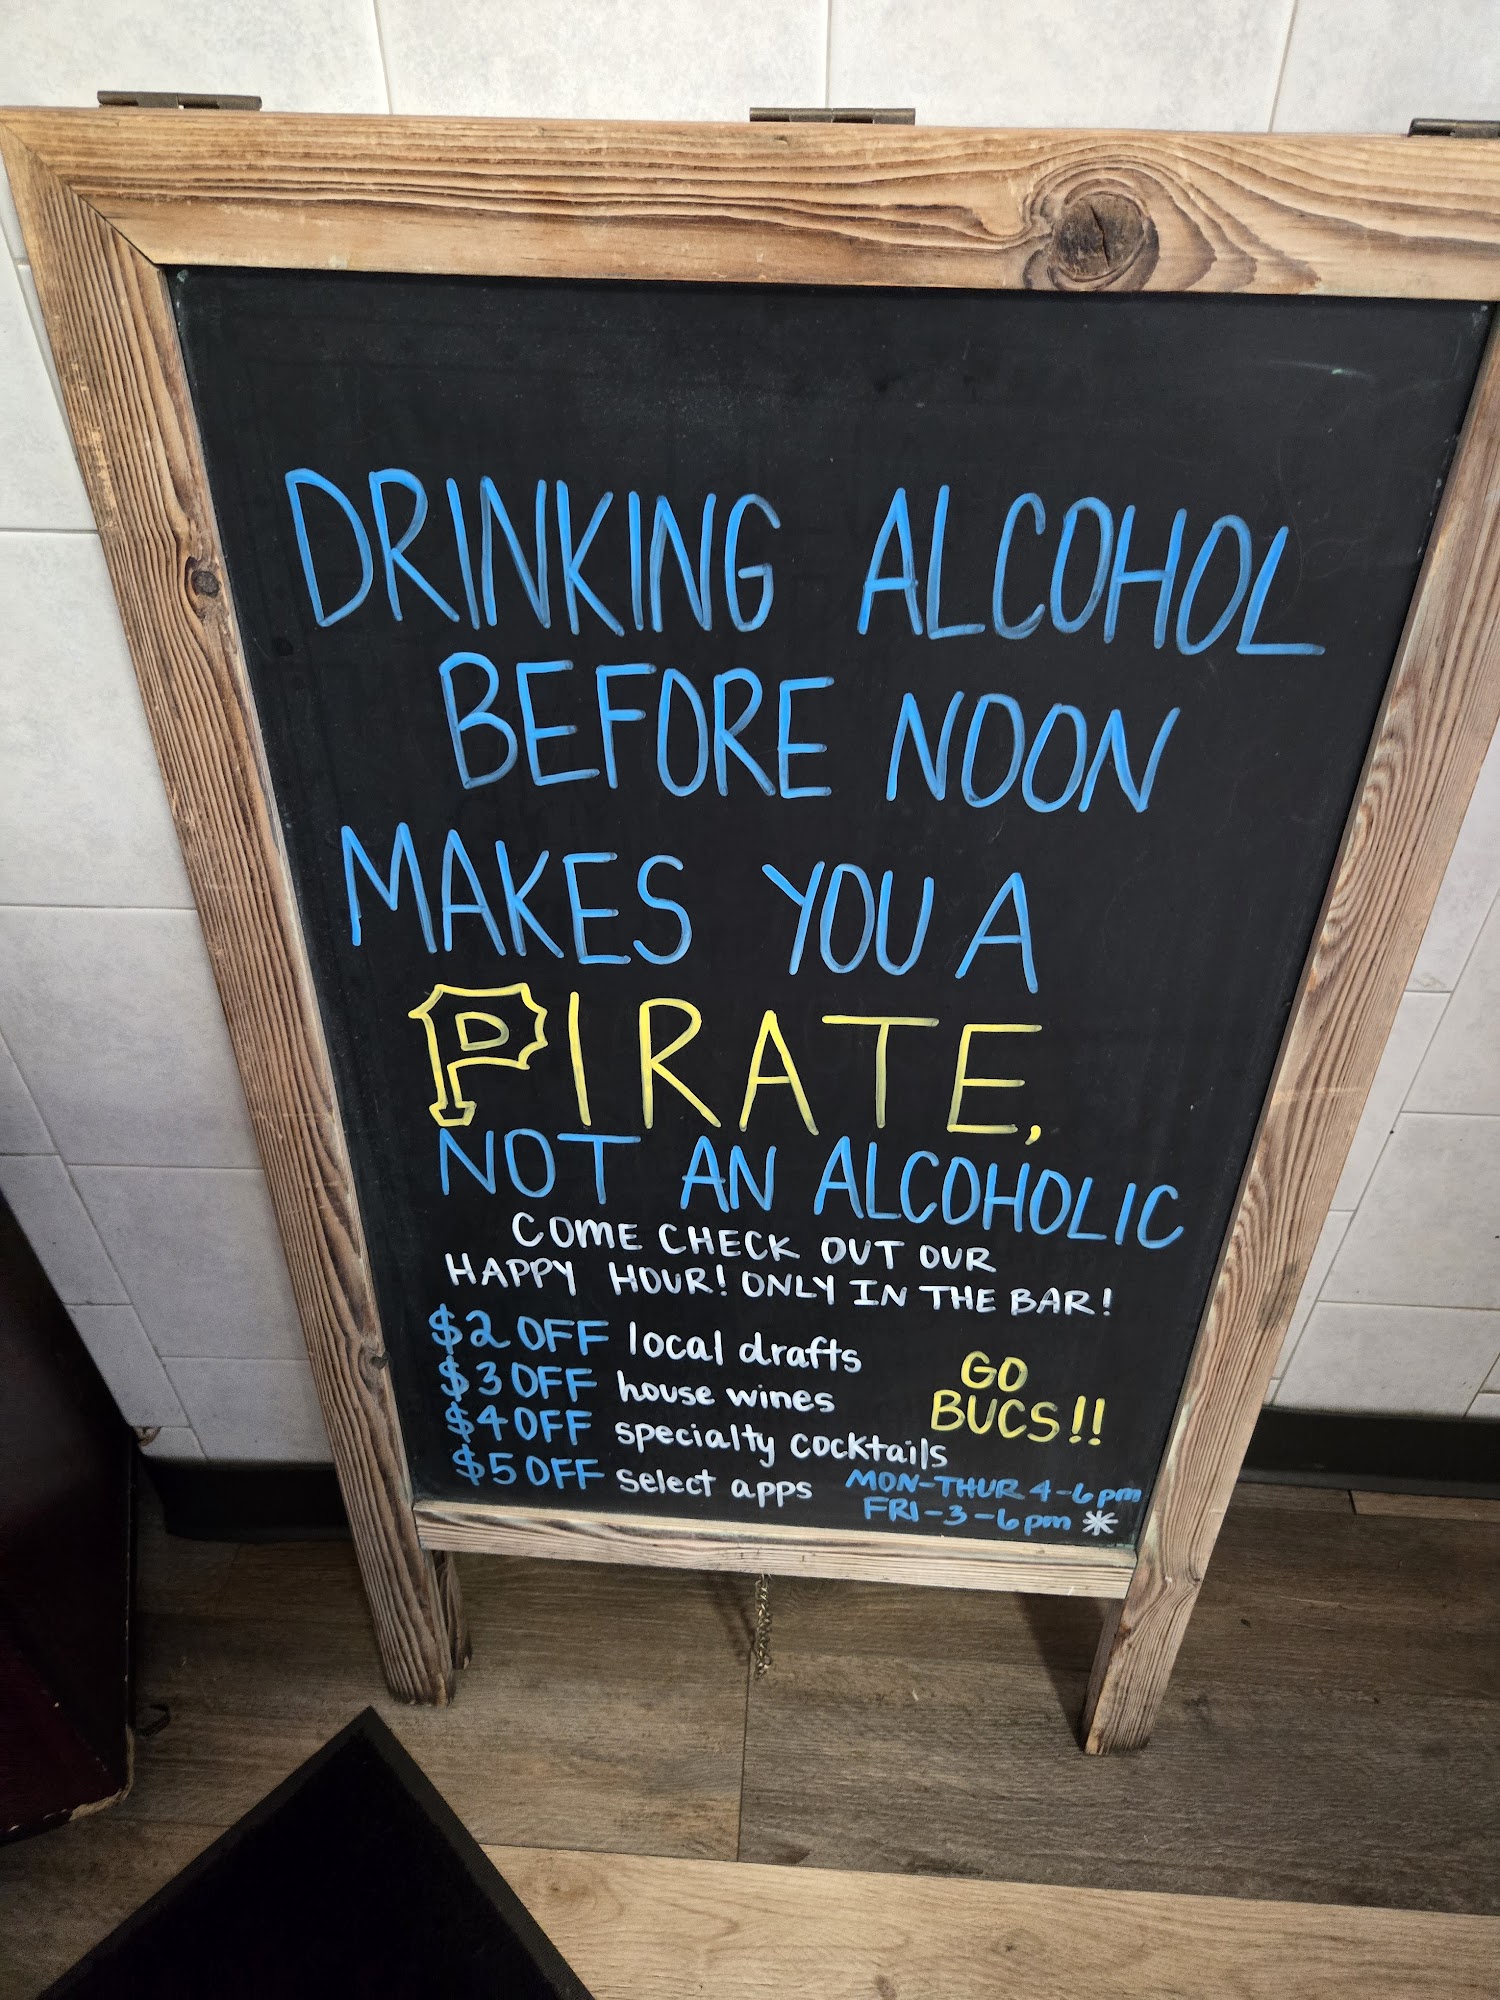 DRINKING ALCOHOL
BEFORE NOON
MAKES YOU A
PIRATE,
NOT AN ALCOHOLIC
COME CHECK OUT OUR
HAPPY HOUR! ONLY IN THE BAR!
$2 OFF local drafts
$3 OFF house wines
$4 OFF specialty cocktails
$5 OFF select apps
GO
BUCS!!
MON-THUR 4-6pm
FRI-3-6pm *